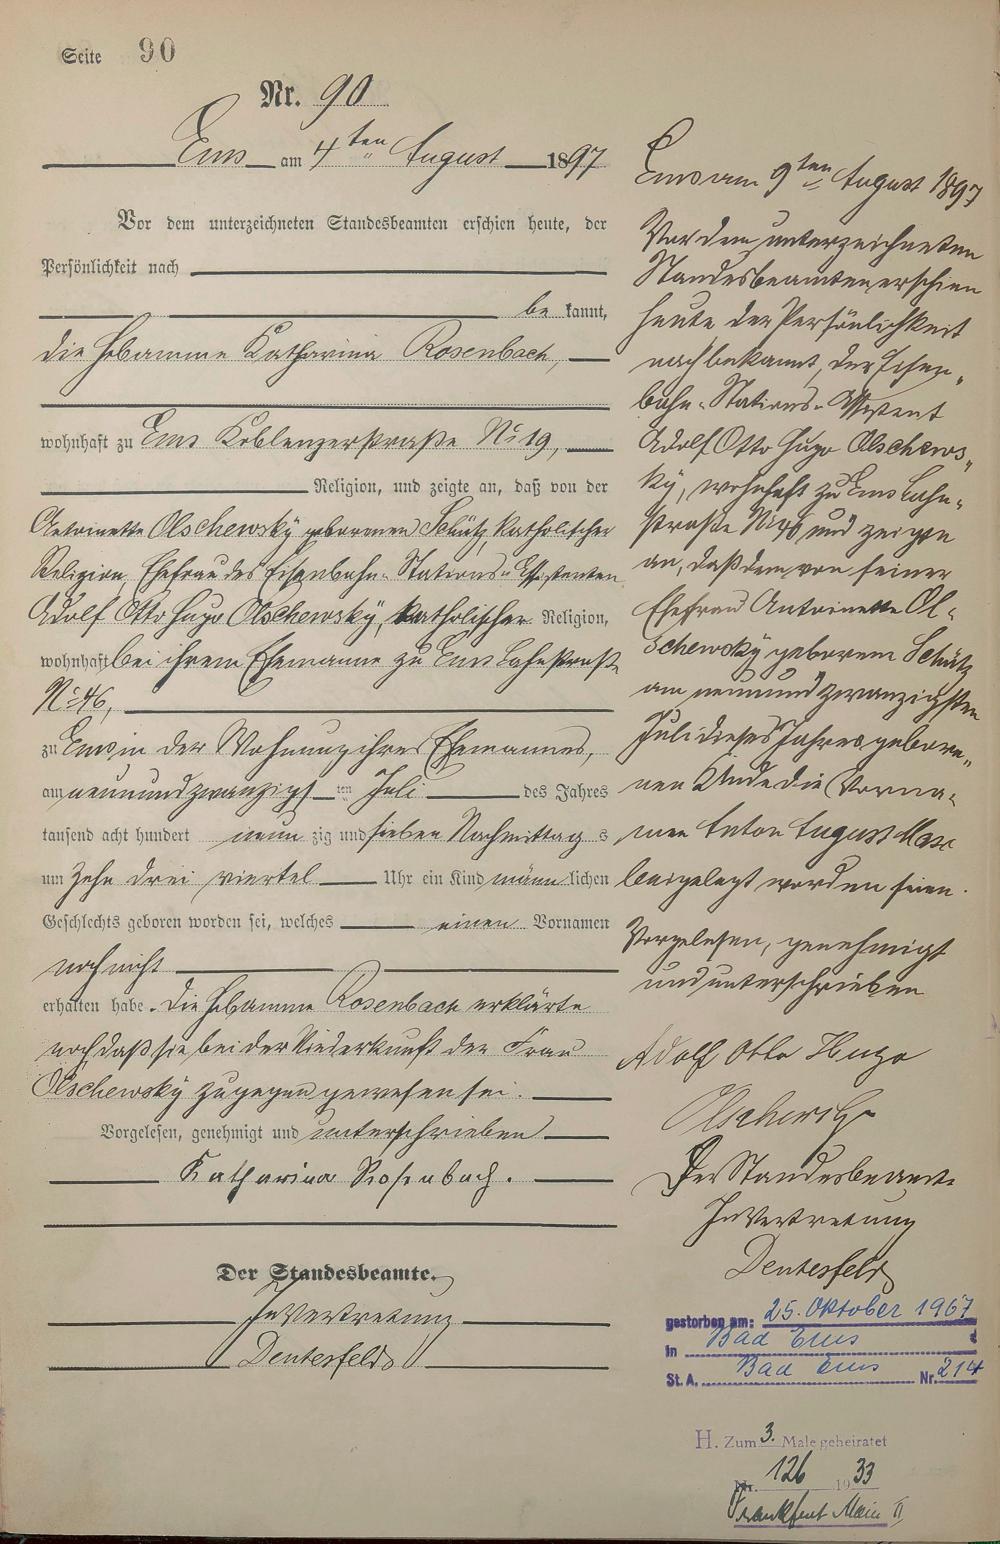 Seite 90
Nr. 90
Ems am 4ten August 1897
Vor dem unterzeichneten Standesbeamten erschien heute, der
Persönlichkeit nach
be kannt,
die Hebamme Katharina Rosenbach,
wohnhaft zu Ems Koblenzerstraße No 19,
Religion, und zeigte an, daß von der
Antoinette Olschewsky geborenen Schütz, katholischer
Religion Ehefrau des Eisenbahn-Stations-Assistenten
Adolf Otto Hugo Olschewsky, katholischer Religion,
wohnhaft bei ihrem Ehemanne zu Ems Lahnstraße
No 46,
zu Ems in der Wohnung ihres Ehemannes,
am neunundzwanzigsten Juli des Jahres
tausend acht hundert neun zig und sieben Nachmittag s
um zehn drei viertel Uhr ein Kind männlichen
Geschlechts geboren worden sei, welches einen Vornamen
noch nicht
erhalten habe. Die Hebamme Rosenbach erklärte
noch, daß sie bei der Niederkunft der Frau
Olschewsky zugegen gewesen sei.
Vorgelesen, genehmigt und unterschrieben
Katharina Rosenbach.
Der Standesbeamte.
In Vertretung
Ems am 9ten August 1897
Vor dem unterzeichneten
Standesbeamten erschien
heute der Persönlichkeit
nach bekannt, der Eisen-
bahn-Stations-Assistent
Adolf Otto Hugo Olschews-
ky, wohnhaft zu Ems Lahn-
straße No 46 und zeigte
an, daß dem von seiner
Ehefrau Antoinette Ol-
schewsky geborenen Schütz
am neunundzwanzigsten
Juli dieses Jahres gebore-
nen Kinde die Vorna-
men Anton August Max
beigelegt worden seien.
Vorgelesen, genehmigt
und unterschrieben
Adolf Otto Hugo
Olschewsky
Der Standesbeamte
In Vertretung
gestorben am: 25. Oktober 1967
in Bad Ems
St. A. Bad Ems Nr. 214
H. Zum 3. Male geheiratet
Nr. 126 1933
Frankfurt Main II